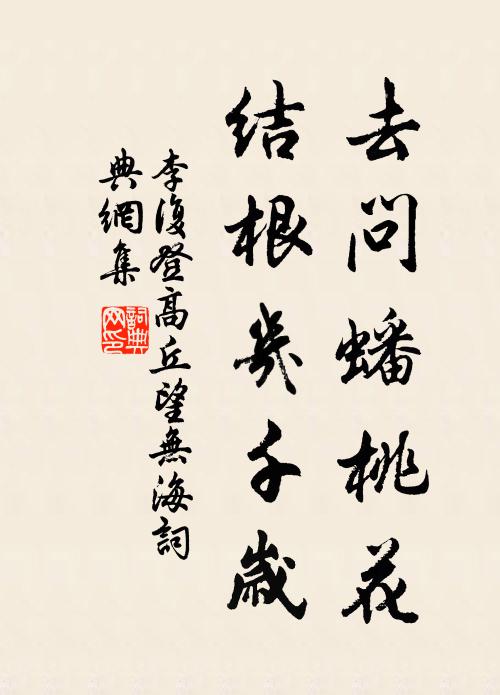 去问蟠桃花
结根几千岁
李復登高丘望無海詞
典網集
詞典网印